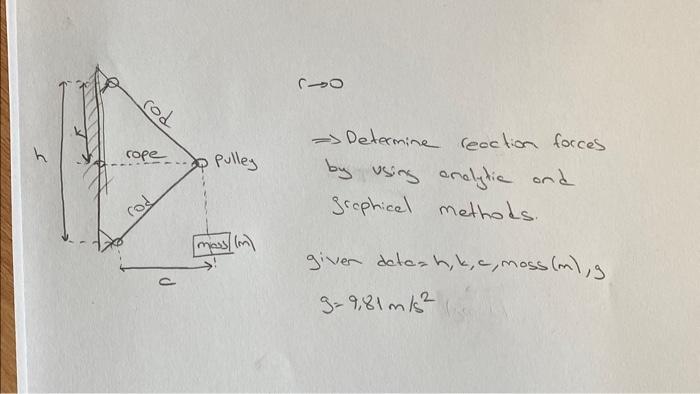 r→0
rod
k
⇒ Determine reaction forces
h
rope
pulley
by using analytic and
rod
graphical methods.
mass (m)
given data = h, k, c, mass (m), g
c
g = 9,81 m/s²